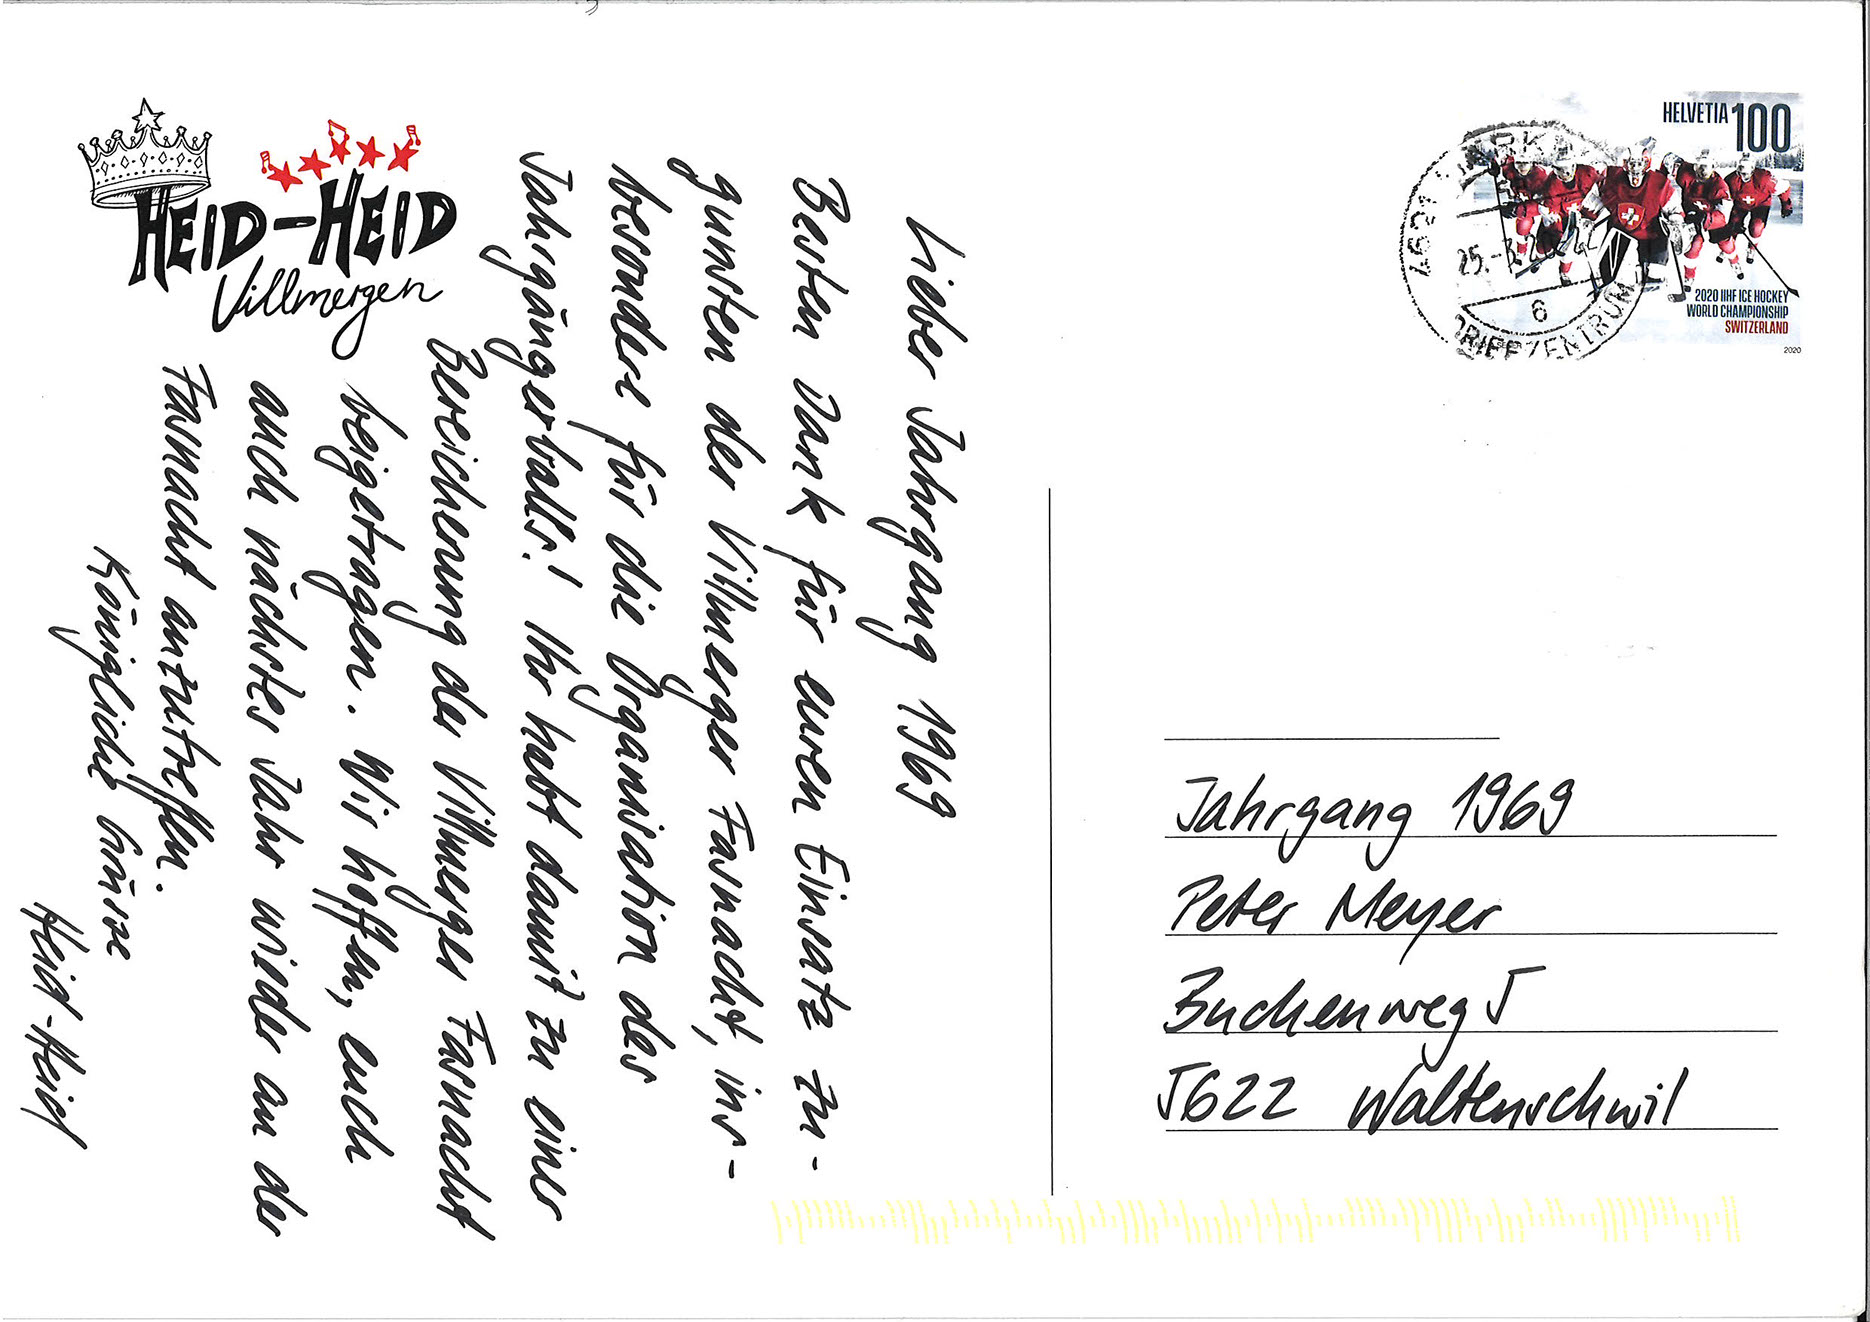 HEID-HEID
Villmergen
Lieber Jahrgang 1969
Besten Dank für euren Einsatz zu-
gunsten der Villmerger Fasnacht, ins-
besondere für die Organisation des
Jahrgängerballs! Ihr habt damit zu einer
Bereicherung der Villmerger Fasnacht
beigetragen. Wir hoffen, euch
auch nächstes Jahr wieder an der
Fasnacht anzutreffen.
Königliche Grüsse
Heid-Heid
HELVETIA 100
2020 IIHF ICE HOCKEY
WORLD CHAMPIONSHIP
SWITZERLAND
2020
25.-
6
BRIEFZENTRUM
Jahrgang 1969
Peter Meyer
Buchenweg 5
5622 Waltenschwil